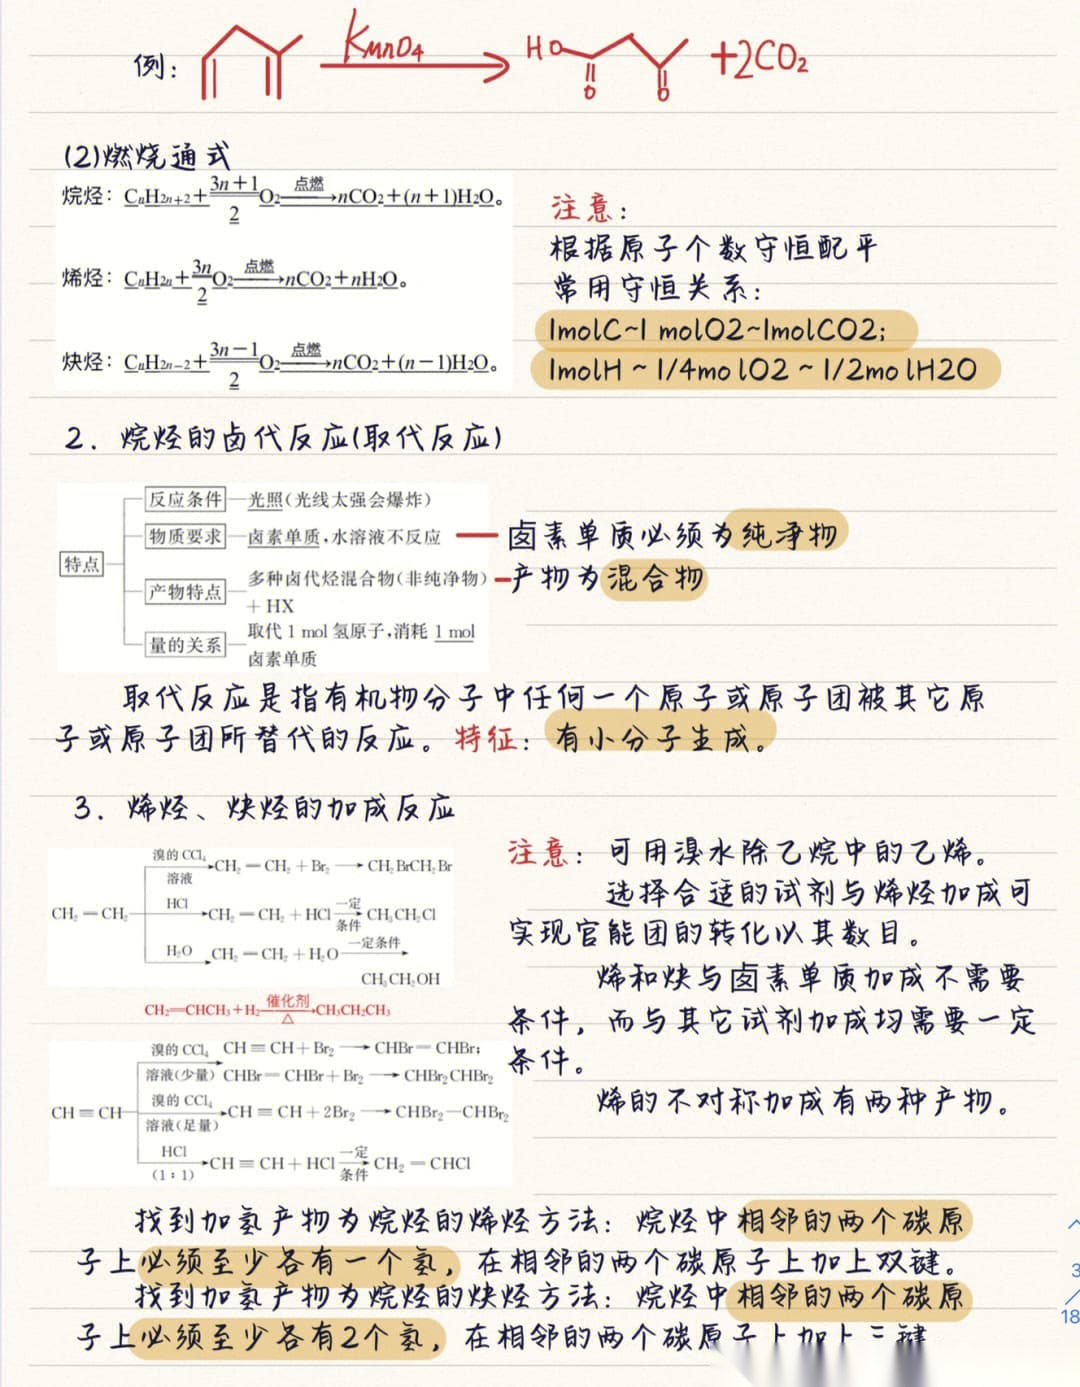 例:
KMnO4
HO
O
O
+2CO2
(2)燃烧通式
烷烃: CnH2n+2+3n+1/2O2点燃→nCO2+(n+1)H2O。
烯烃: CnH2n+3n/2O2点燃→nCO2+nH2O。
炔烃: CnH2n-2+3n-1/2O2点燃→nCO2+(n-1)H2O。
注意:
根据原子个数守恒配平
常用守恒关系:
1molC~1 molO2~1molCO2;
1molH ~ 1/4molO2 ~ 1/2molH2O
2. 烷烃的卤代反应(取代反应)
特点
反应条件 光照(光线太强会爆炸)
物质要求 卤素单质,水溶液不反应 — 卤素单质必须为纯净物
产物特点 多种卤代烃混合物(非纯净物) — 产物为混合物
+ HX
量的关系 取代 1 mol 氢原子,消耗 1 mol
卤素单质
取代反应是指有机物分子中任何一个原子或原子团被其它原
子或原子团所替代的反应。特征: 有小分子生成。
3. 烯烃、炔烃的加成反应
CH2=CH2
溴的 CCl4 溶液 →CH2=CH2+Br2→CH2BrCH2Br
HCl →CH2=CH2+HCl 一定条件→CH3CH2Cl
H2O →CH2=CH2+H2O 一定条件→
CH3CH2OH
CH2=CHCH3+H2 催化剂 △→CH3CH2CH3
CH≡CH
溴的 CCl4 溶液(少量) CH≡CH+Br2→CHBr=CHBr;
CHBr=CHBr+Br2→CHBr2CHBr2
溴的 CCl4 溶液(足量) →CH≡CH+2Br2→CHBr2—CHBr2
HCl (1:1) →CH≡CH+HCl 一定条件→CH2=CHCl
注意: 可用溴水除乙烷中的乙烯。
选择合适的试剂与烯烃加成可
实现官能团的转化以其数目。
烯和炔与卤素单质加成不需要
条件,而与其它试剂加成均需要一定
条件。
烯的不对称加成有两种产物。
找到加氢产物为烷烃的烯烃方法: 烷烃中相邻的两个碳原
子上必须至少各有一个氢,在相邻的两个碳原子上加上双键。
找到加氢产物为烷烃的炔烃方法: 烷烃中相邻的两个碳原
子上必须至少各有2个氢,在相邻的两个碳原子上加上三键
3
/
18